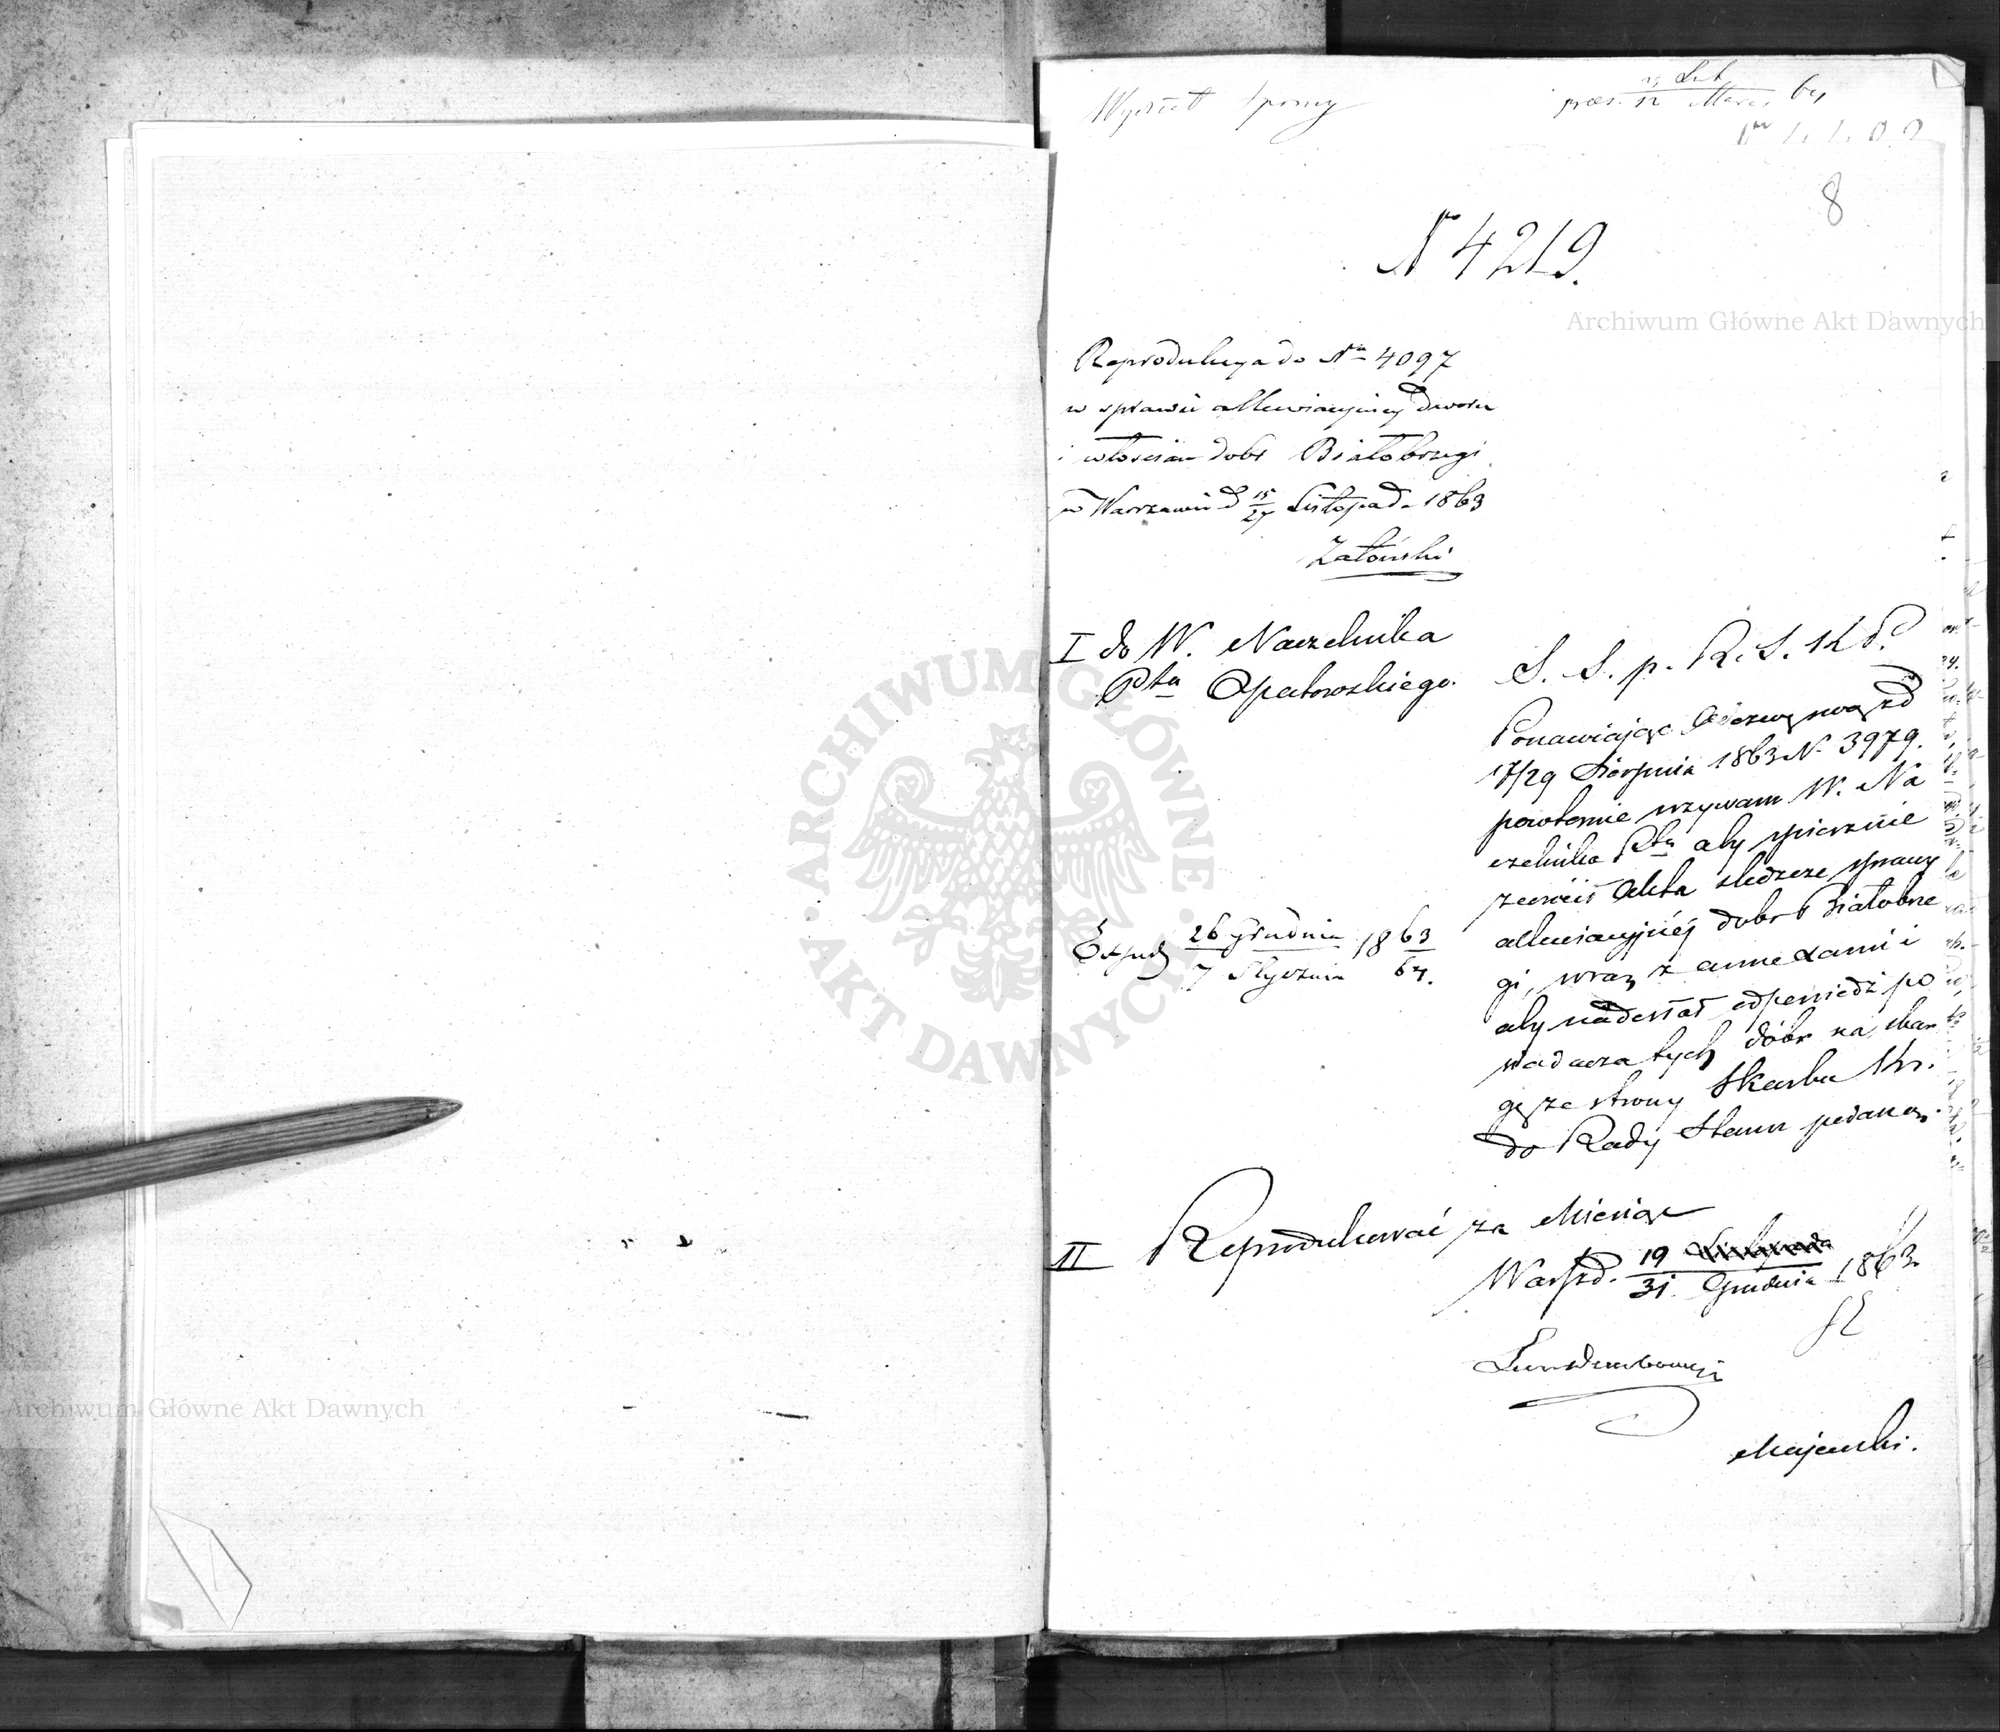 Wydział Sporny
8
N 4219.
Archiwum Główne Akt Dawnych
Reprodukcya do Nru 4097
w sprawie alluwiacyjnej dworu
i włościan dóbr Białobrzegi
w Warszawie d 15/27 Listopada 1863
I do W. Naczelnika
Ptu Opatowskiego.
S. S. p. K. S.
Ponawiając Odezwę swoją z d
17/29 Sierpnia 1863 N. 3979.
powtórnie wzywam W. Na
czelnika Ptu aby spiesznie
zwrócił Akta śledcze sprawy
alluwiacyjnéj dóbr Białobrze
gi, wraz z annexami i
aby nadesłał odpowiedź po
siadacza tych dóbr na skar
gę ze strony Skarbu Kr.
do Rady Stanu podaną.
Exped 26 Grudnia / 7 Stycznia 1863/64.
II Reprodukować za Miesiąc
Warsz d. 19/31 Grudnia 1863
Majewski.
ARCHIWUM GŁÓWNE · AKT DAWNYCH ·
Archiwum Główne Akt Dawnych